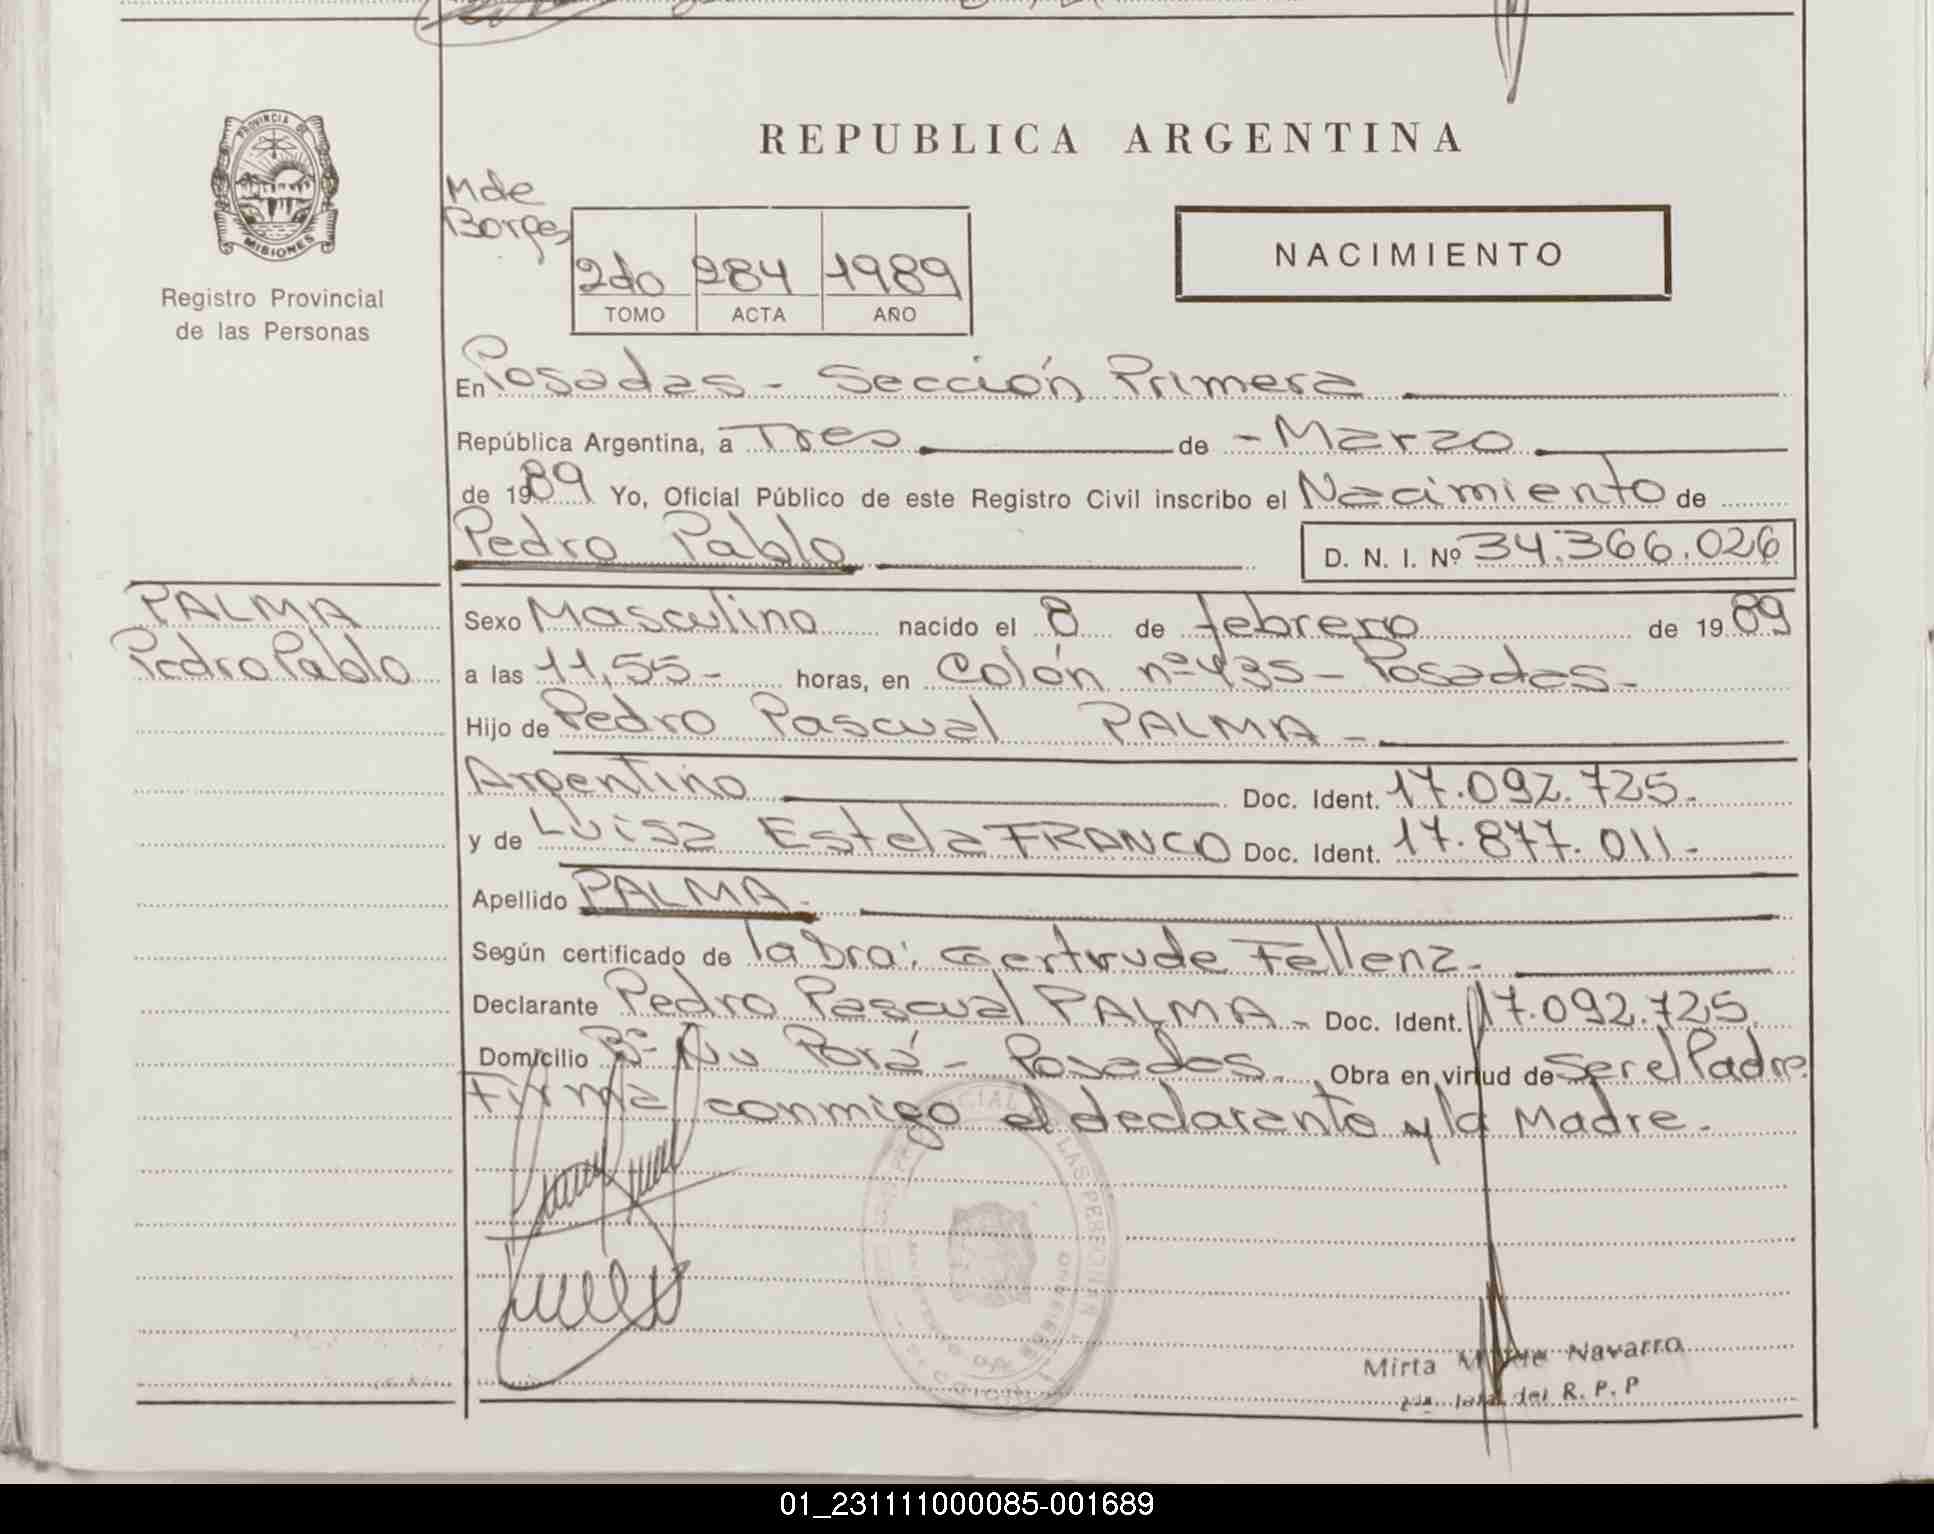 PROVINCIA DE
MISIONES
Registro Provincial
de las Personas
REPUBLICA ARGENTINA
M de
Borges
2do 284 1989
TOMO ACTA AÑO
NACIMIENTO
En Posadas - Sección Primera
República Argentina, a Tres de - Marzo
de 1989 Yo, Oficial Público de este Registro Civil inscribo el Nacimiento de
Pedro Pablo D. N. I. Nº 34.366.026
PALMA
Pedro Pablo
Sexo Masculino nacido el 8 de febrero de 1989
a las 11,55- horas, en Colón nº 435- Posadas-
Hijo de Pedro Pascual PALMA -
Argentino Doc. Ident. 17.092.725.
y de Luisa Estela FRANCO Doc. Ident. 17.877.011-
Apellido PALMA-
Según certificado de la Dra: Gertrude Fellenz-
Declarante Pedro Pascual PALMA- Doc. Ident. 17.092.725
Domicilio Bº Ñu Porá - Posadas- Obra en virtud de ser el Padre.
Firma conmigo el declarante y la Madre.
Mirta de Navarro
del R. P. P
01_231111000085-001689